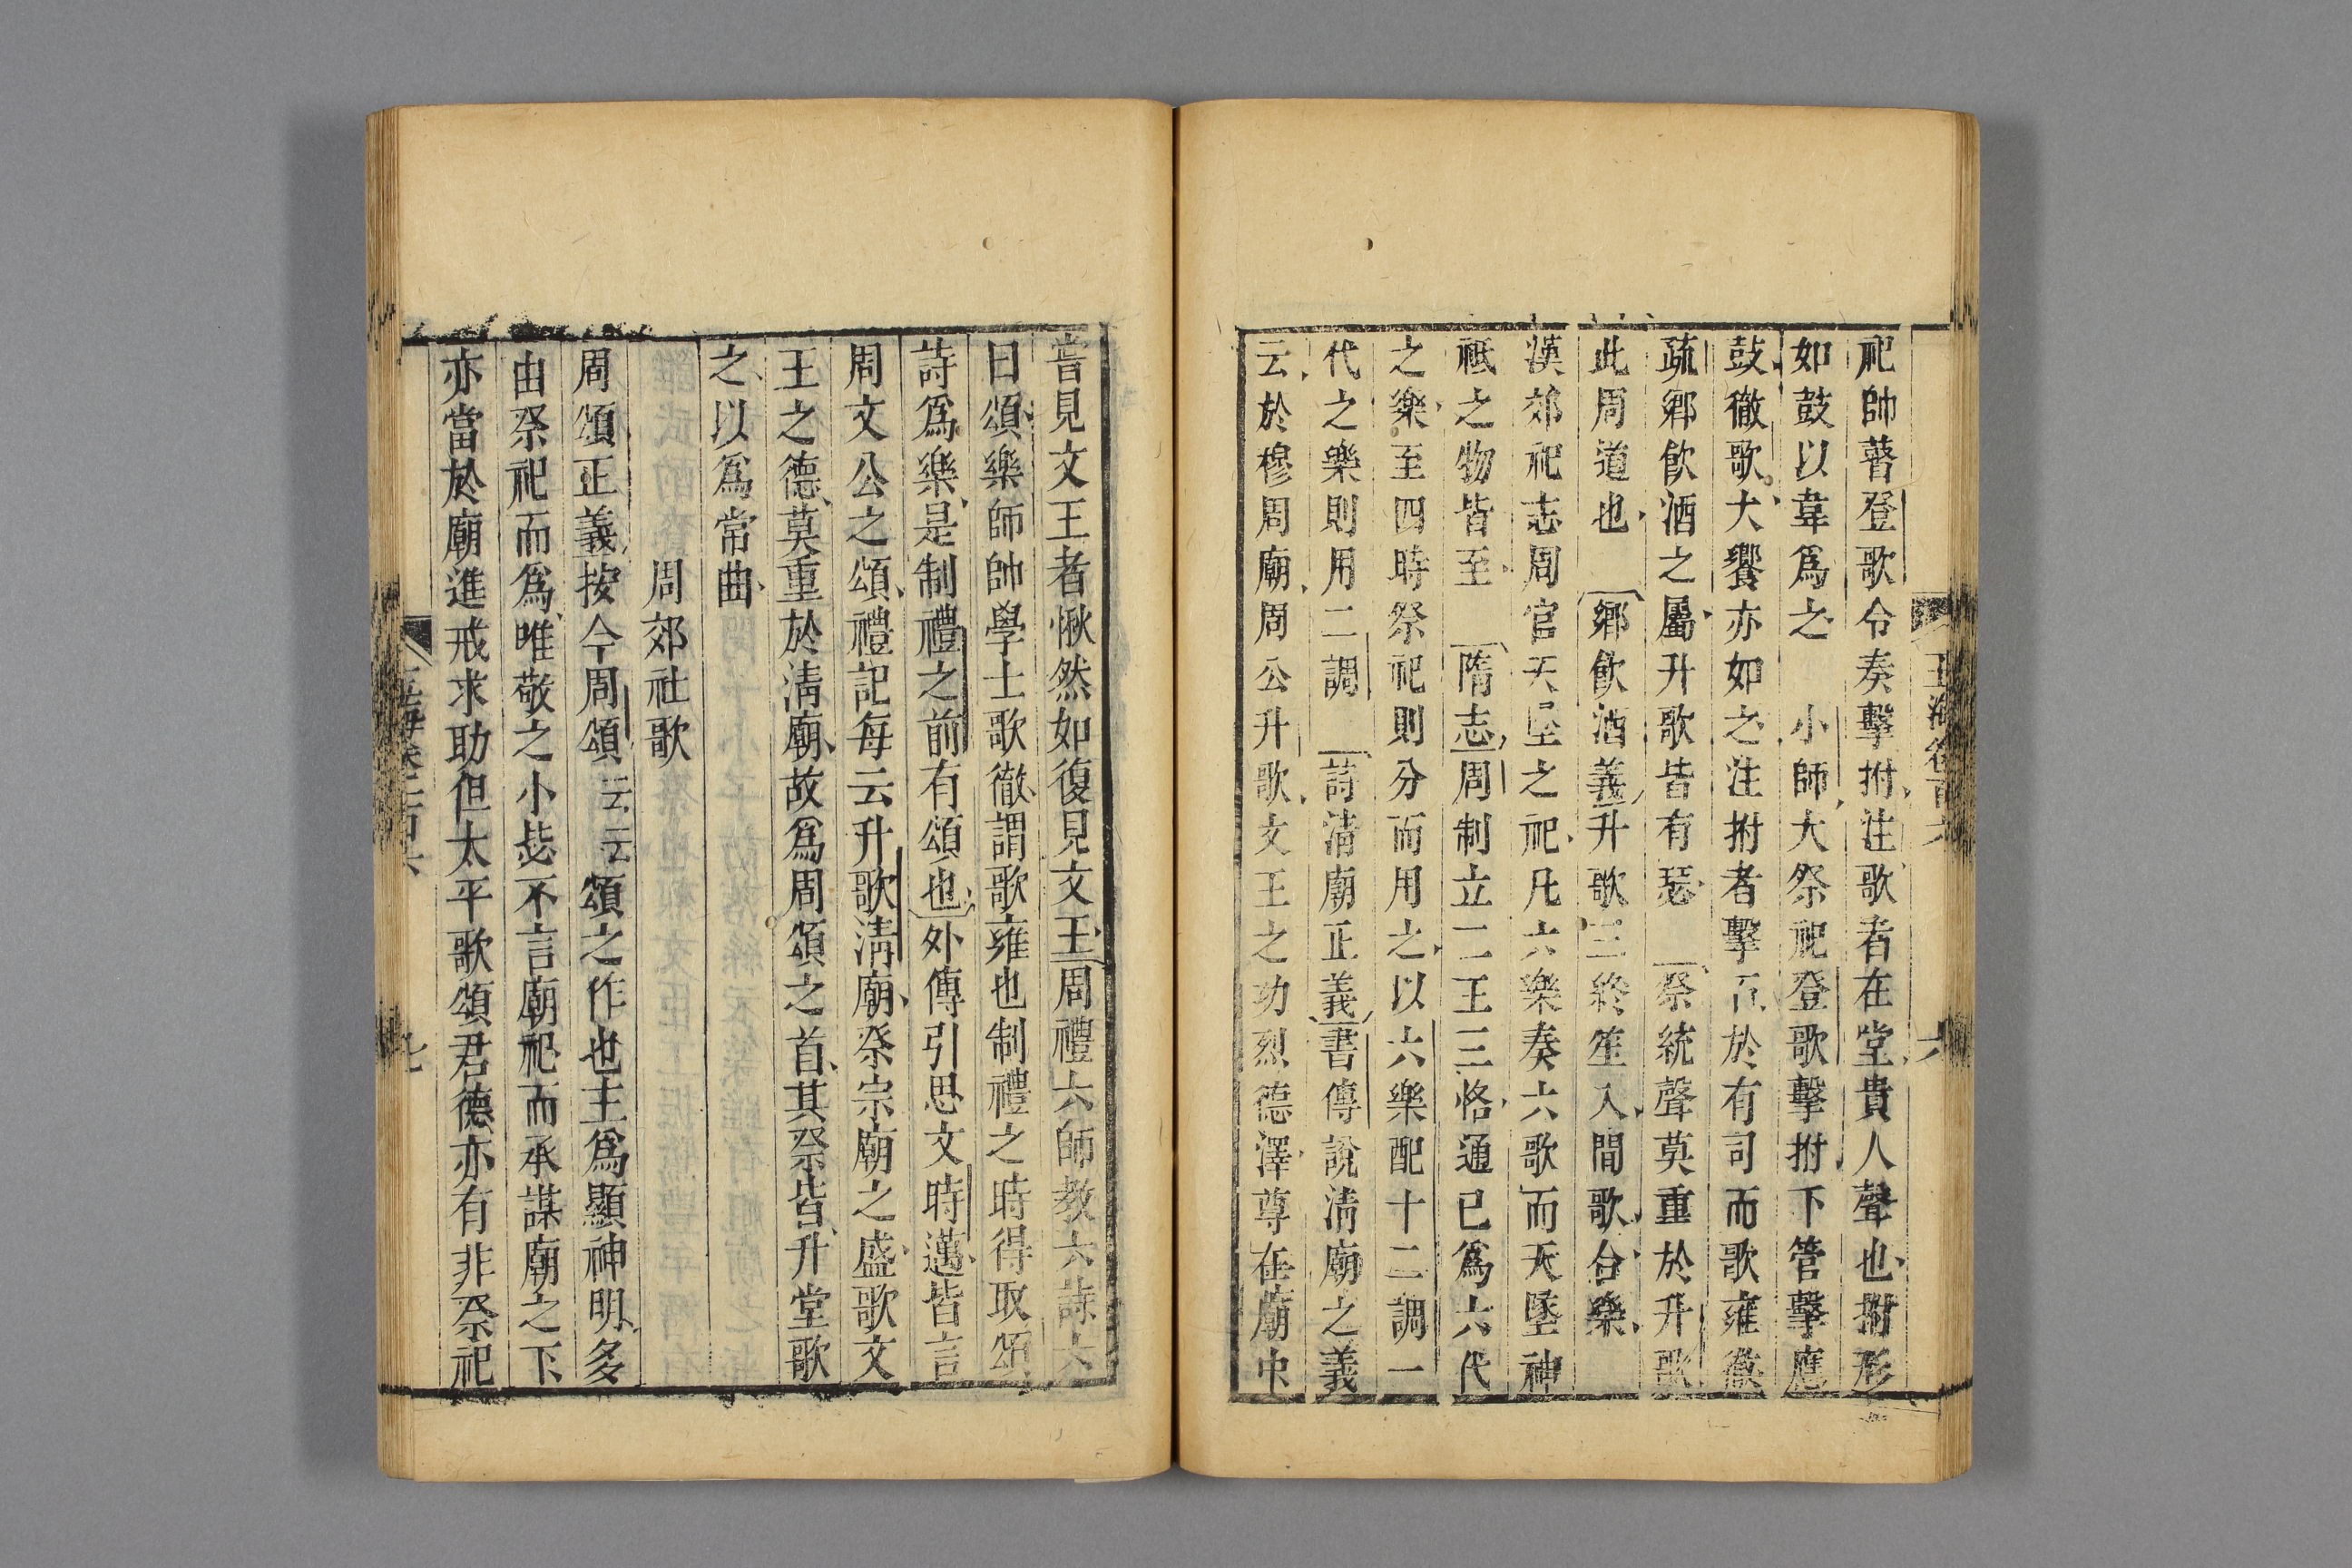 祀帥瞽登歌令奏擊拊注歌者在堂貴人聲也拊形
如鼓以韋爲之 小師大祭祀登歌擊拊下管擊應
鼓徹歌大饗亦如之注拊者擊石於有司而歌雍徹
疏鄉飲酒之屬升歌皆有瑟 祭統聲莫重於升歌
此周道也 鄉飲酒義升歌三終笙入間歌合樂
漢郊祀志周官天墬之祀凡六樂奏六歌而天墬神
祗之物皆至 隋志周制立二王三恪通已爲六代
之樂至四時祭祀則分而用之以六樂配十二調一
代之樂則用二調 詩清廟正義書傳說清廟之義
云於穆周廟周公升歌文王之功烈德澤尊在廟中
嘗見文王者愀然如復見文王周禮六師教六詩六
曰頌樂師帥學士歌徹謂歌雍也制禮之時得取頌
詩爲樂是制禮之前有頌也外傳引思文時邁皆言
周文公之頌禮記每云升歌清廟祭宗廟之盛歌文
王之德莫重於清廟故爲周頌之首其祭皆升堂歌
之以爲常曲
周郊社歌
周頌正義按今周頌云云頌之作也主爲顯神明多
由祭祀而爲唯敬之小毖不言廟祀而承謀廟之下
亦當於廟進戒求助但太平歌頌君德亦有非祭祀
七